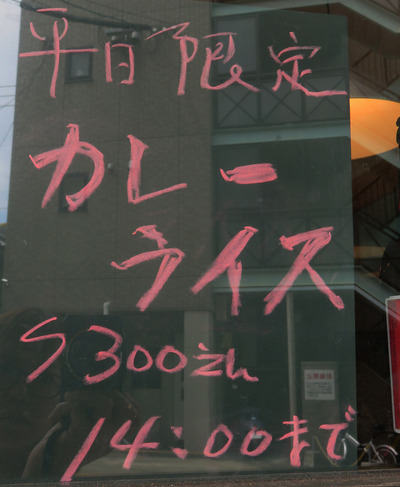 平日限定
カレー
ライス
S300えん
14:00まで